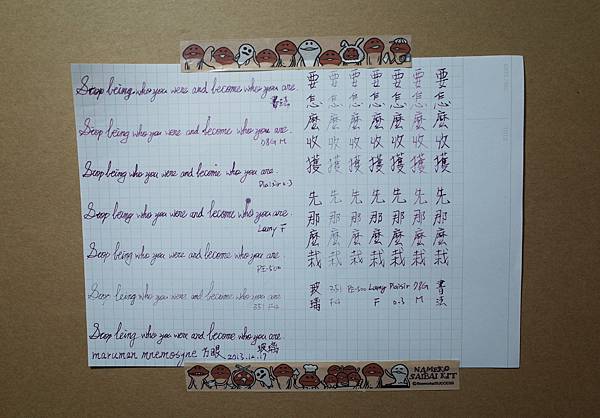 Stop being who you were and become who you are.
書法
Stop being who you were and become who you are.
78G M
Stop being who you were and become who you are.
Plaisir 0.3
Stop being who you were and become who you are.
Lamy F
Stop being who you were and become who you are.
PE-500
Stop being who you were and become who you are.
351 F4
Stop being who you were and become who you are.
玻璃
maruman mnemosyne 方眼 2013.12.17
要怎麼收獲先那麼栽 書法
要怎麼收獲先那麼栽 78G M
要怎麼收獲先那麼栽 Plaisir 0.3
要怎麼收獲先那麼栽 Lamy F
要怎麼收獲先那麼栽 PE-500
要怎麼收獲先那麼栽 351 F4
要怎麼收獲先那麼栽 玻璃
NAMEKO
SAIBAI KIT
©BeeworksSUCCESS